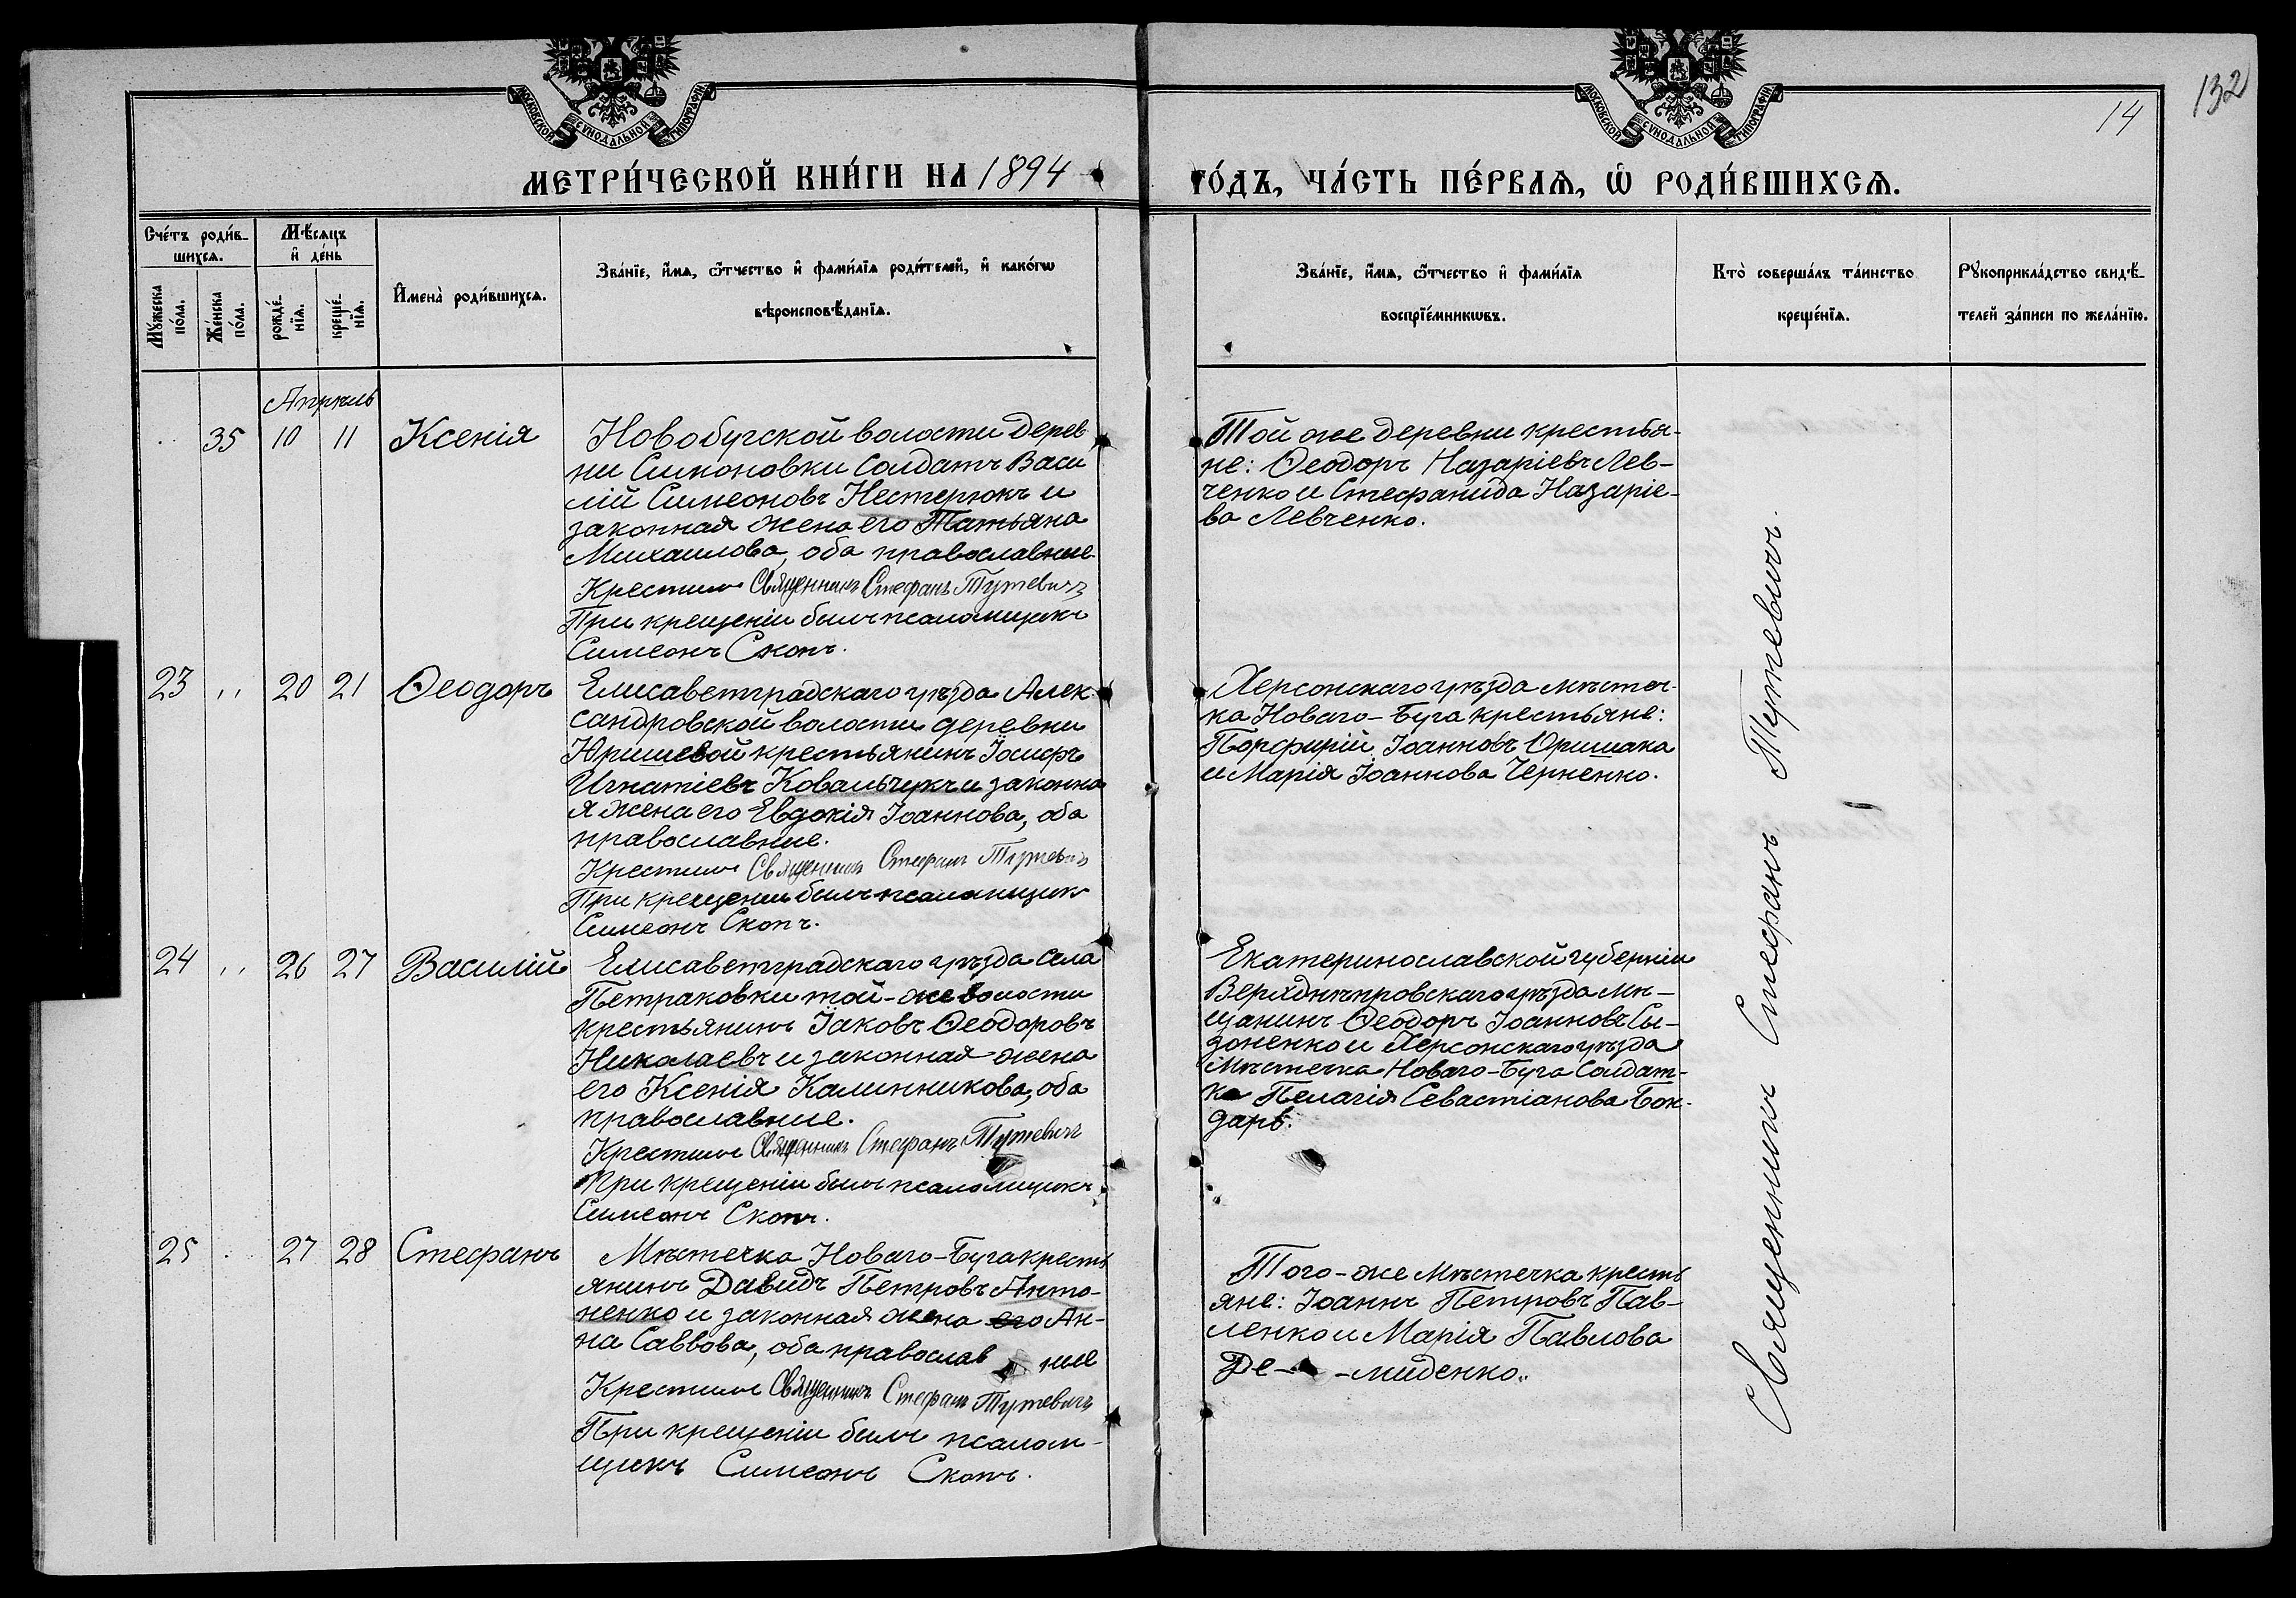 132
14
МОСКОВСКОЙ СѴНОДАЛЬНОЙ ТИПОГРАФІИ
МОСКОВСКОЙ СѴНОДАЛЬНОЙ ТИПОГРАФІИ
МЕТРИ́ЧЕСКОЙ КНИ́ГИ НА 1894 ГО́ДЪ, ЧА́СТЬ ПЕ́РВАѦ, Ѡ҆ РОДИ́ВШИХСѦ.
Сче́тъ роди́в-
шихсѧ.
Мꙋ́жеска
по́ла.
Же́нска
по́ла.
Мѣ́сѧцъ
и҆ де́нь
рожде́-
нїѧ.
креще́-
нїѧ.
И҆мена̀ роди́вшихсѧ.
Зва́нїе, и҆́мѧ, ѻ҆́тчество и҆ фами́лїѧ роди́телей, и҆ како́гѡ
вѣроисповѣ́данїѧ.
Зва́нїе, и҆́мѧ, ѻ҆́тчество и҆ фами́лїѧ
воспрїе́мникѡвъ.
Кто̀ соверша́лъ та́инство
креще́нїѧ.
Рꙋкоприкла́дство свидѣ́-
телей за́писи по жела́нїю.
Апрѣль
35 10 11 Ксенія
Новобугской волости дерев
ни Симоновки Солдатъ Васи
лій Симеоновъ Нестерюкъ и
законная жена его Татьяна
Михаилова, оба православные
Крестилъ Священникъ Стефанъ Тутевичъ
При крещеніи былъ псаломщикъ
Симеонъ Скопъ.
Той же деревни крестья-
не: Ѳеодоръ Назаріевъ Лев-
ченко и Стефанида Назаріе-
ва Левченко.
23 ,, 20 21 Ѳеодоръ
Елисаветградскаго уѣзда Алек
сандровской волости деревни
Юришевой крестьянинъ Іосифъ
Игнатіевъ Ковальчукъ и законна
я жена его Евдокія Іоаннова, оба
православные.
Крестилъ Священникъ Стефанъ Тутевичъ
При крещеніи былъ псаломщикъ
Симеонъ Скопъ.
Херсонскаго уѣзда мѣстеч-
ка Новаго-Буга крестьяне:
Порфирій Іоанновъ Оришака
и Марія Іоаннова Черненко.
24 ,, 26 27 Василій
Елисаветградскаго уѣзда Села
Петраковки той-же волости
крестьянинъ Іаковъ Ѳеодоровъ
Николаевъ и законная жена
его Ксенія Калинникова, оба
православные.
Крестилъ Священникъ Стефанъ Тутевичъ
При крещеніи былъ псаломщикъ
Симеонъ Скопъ.
Екатеринославской губерніи
Верхднѣпровскаго уѣзда мѣ-
щанинъ Ѳеодоръ Іоанновъ Сы-
зоненко и Херсонскаго уѣзда
Мѣстечка Новаго-Буга Солдат-
ка Пелагія Севастіанова Бон-
дарь.
25 27 28 Стефанъ
Мѣстечка Новаго-Буга кресть
янинъ Давидъ Петровъ Анто-
ненко и законная жена его Ан-
на Саввова, оба православ ные
Крестилъ Священникъ Стефанъ Тутевичъ
При крещеніи былъ псалом-
щикъ Симеонъ Скопъ.
Того-же Мѣстечка кресть
яне: Іоаннъ Петровъ Пав-
ленко и Марія Павлова
Де- -миденко.
Священникъ Стефанъ Тутевичъ.